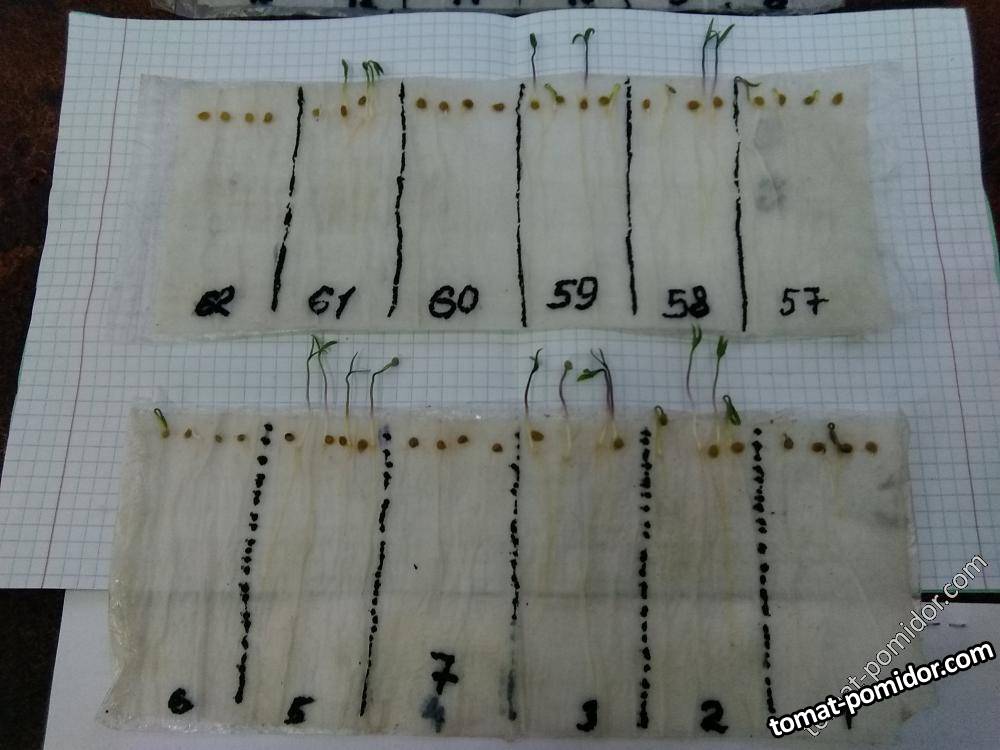 62 61 60 59 58 57
7
6 5 4 3 2 1
tomat-pomidor.com
tomat-pomidor.com